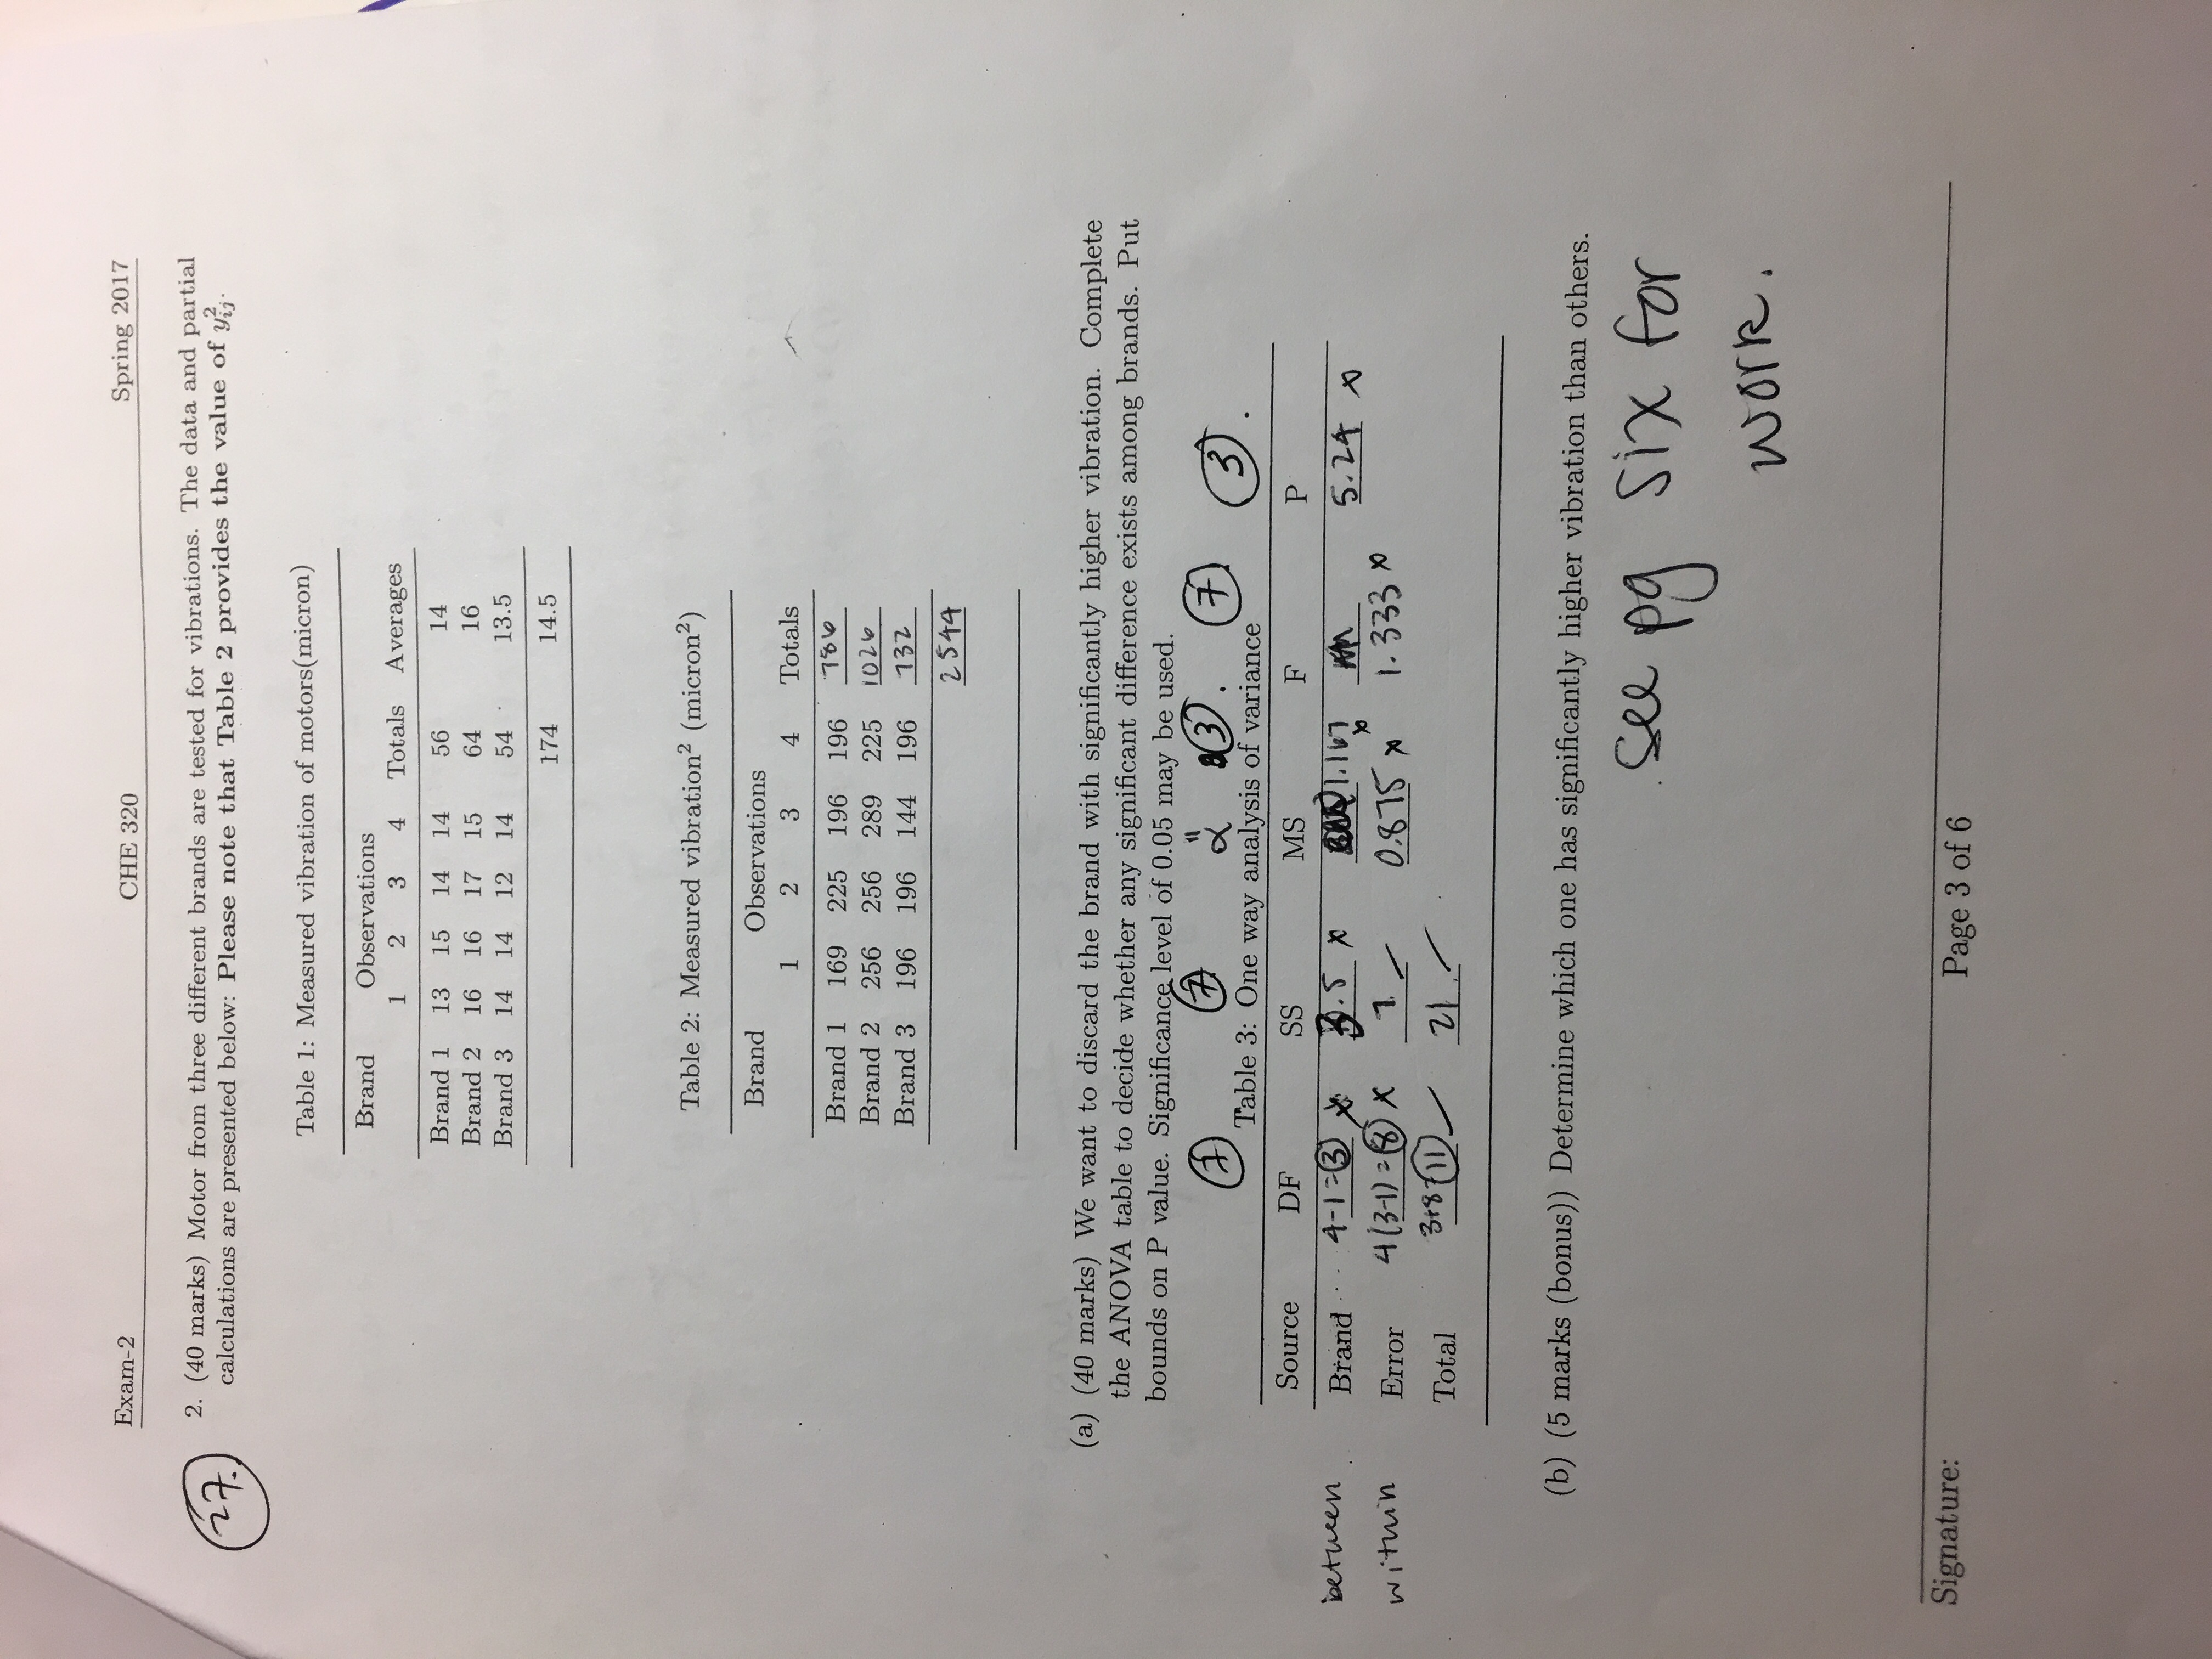 Exam-2 CHE 320 Spring 2017
27.
2. (40 marks) Motor from three different brands are tested for vibrations. The data and partial
calculations are presented below: Please note that Table 2 provides the value of y²ᵢⱼ.
Table 1: Measured vibration of motors(micron)
Brand Observations
1 2 3 4 Totals Averages
Brand 1 13 15 14 14 56 14
Brand 2 16 16 17 15 64 16
Brand 3 14 14 12 14 54 13.5
174 14.5
Table 2: Measured vibration² (micron²)
Brand Observations
1 2 3 4 Totals
Brand 1 169 225 196 196 786
Brand 2 256 256 289 225 1026
Brand 3 196 196 144 196 732
2544
(a) (40 marks) We want to discard the brand with significantly higher vibration. Complete
the ANOVA table to decide whether any significant difference exists among brands. Put
bounds on P value. Significance level of 0.05 may be used.
7 7 " α 3. 7 3.
Table 3: One way analysis of variance
Source DF SS MS F P
between Brand 4-1=3 x 3.5 x 1.167 x 5.24 x
within Error 4(3-1)=8 x 7 ✓ 0.875 x 1.333 x
Total 3+8=11 ✓ 21 ✓
(b) (5 marks (bonus)) Determine which one has significantly higher vibration than others.
see pg six for
work.
Signature: Page 3 of 6